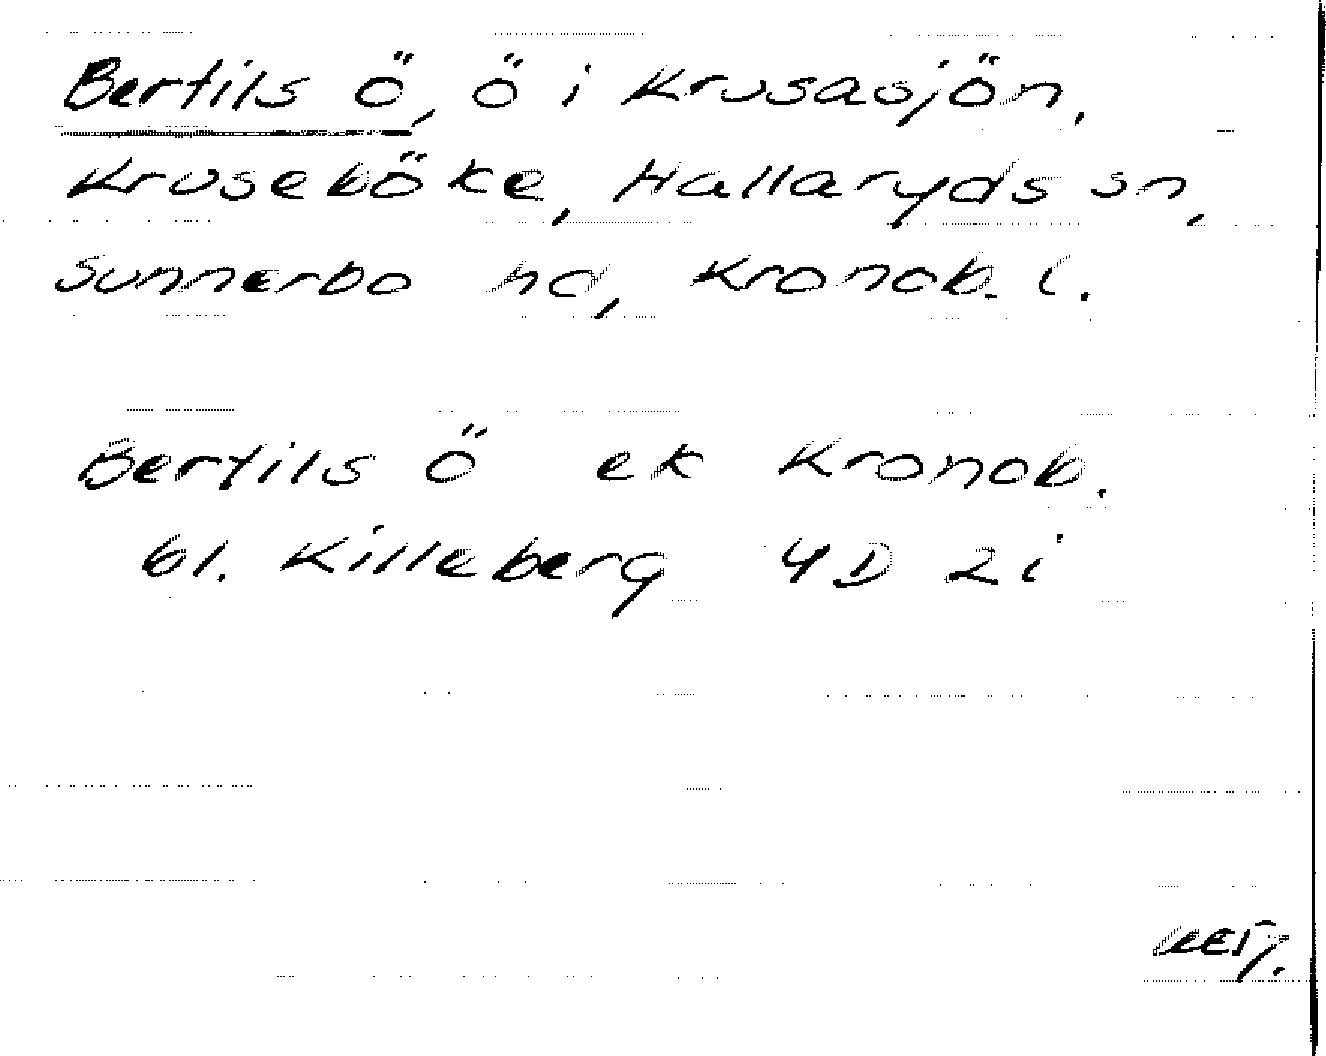 Bertils Ö, ö i Krusasjön,
Kruseböke, Hallaryds sn,
Sunnerbo hd, Kronob. l.
Bertils Ö ek Kronob.
bl. Killeberg 4D 2i